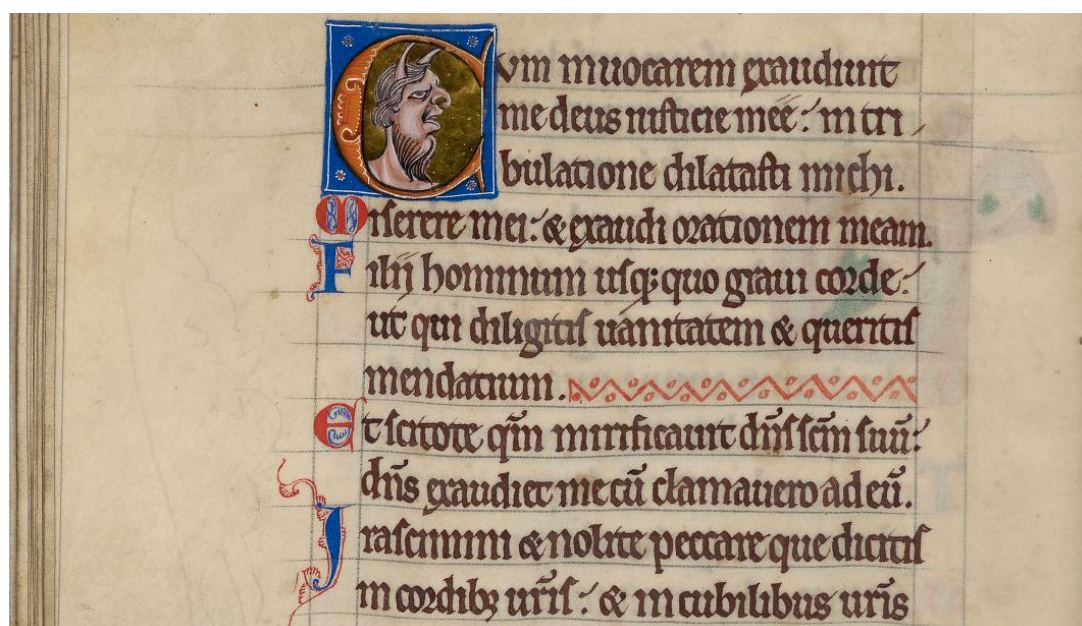 Cum inuocarem exaudiuit
me deus iusticie meē: in tri
bulatione dilatasti michi.
Miserere mei: & exaudi orationem meam.
Filij hominum usq; quo graui corde:
ut qui diligitis uanitatem & queritis
mendatium.
Et scitote qm̄ mirificauit dn̄s scm̄ suū:
dn̄s exaudiet me cū clamauero ad eū.
Irascimini & nolite peccare que dicitis
in cordibꝫ ur̄is: & in cubilibus ur̄is